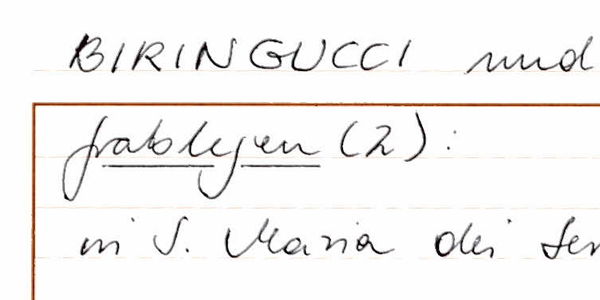 BIRINGUCCI und
Grablegen (2):
in S. Maria dei Ser